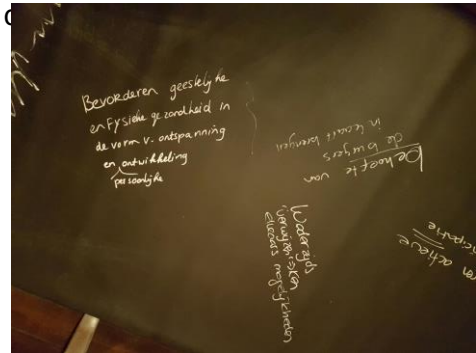 Bevorderen geestelijke
en Fysieke gezondheid in
de vorm v. ontspanning
en ontwikkeling
persoonlijke
Behoefte van
de burgers
in kaart brengen
Wederzijds
verwijzen
elkaars mogelijkheden
achieve